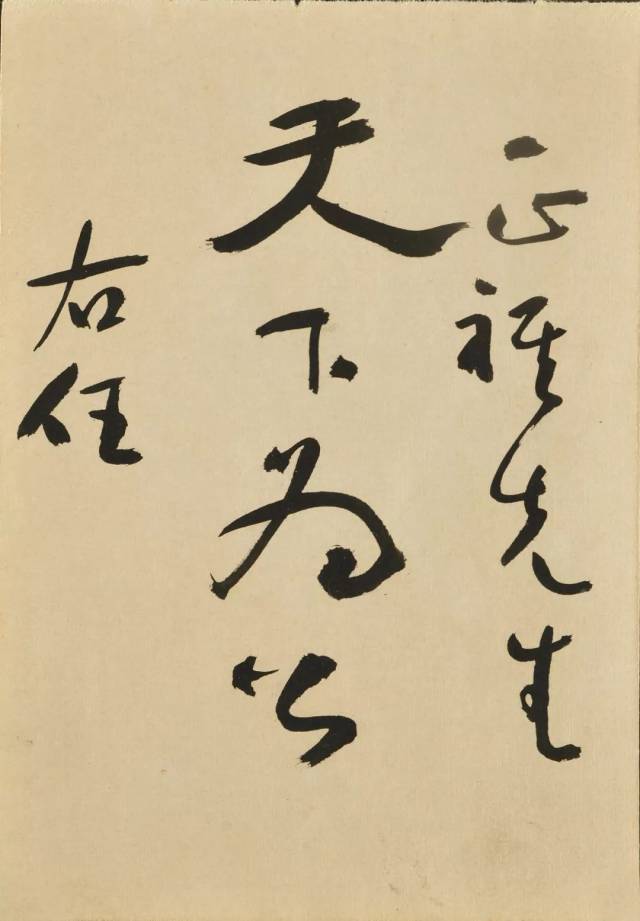 正祺先生
天下為公
右任